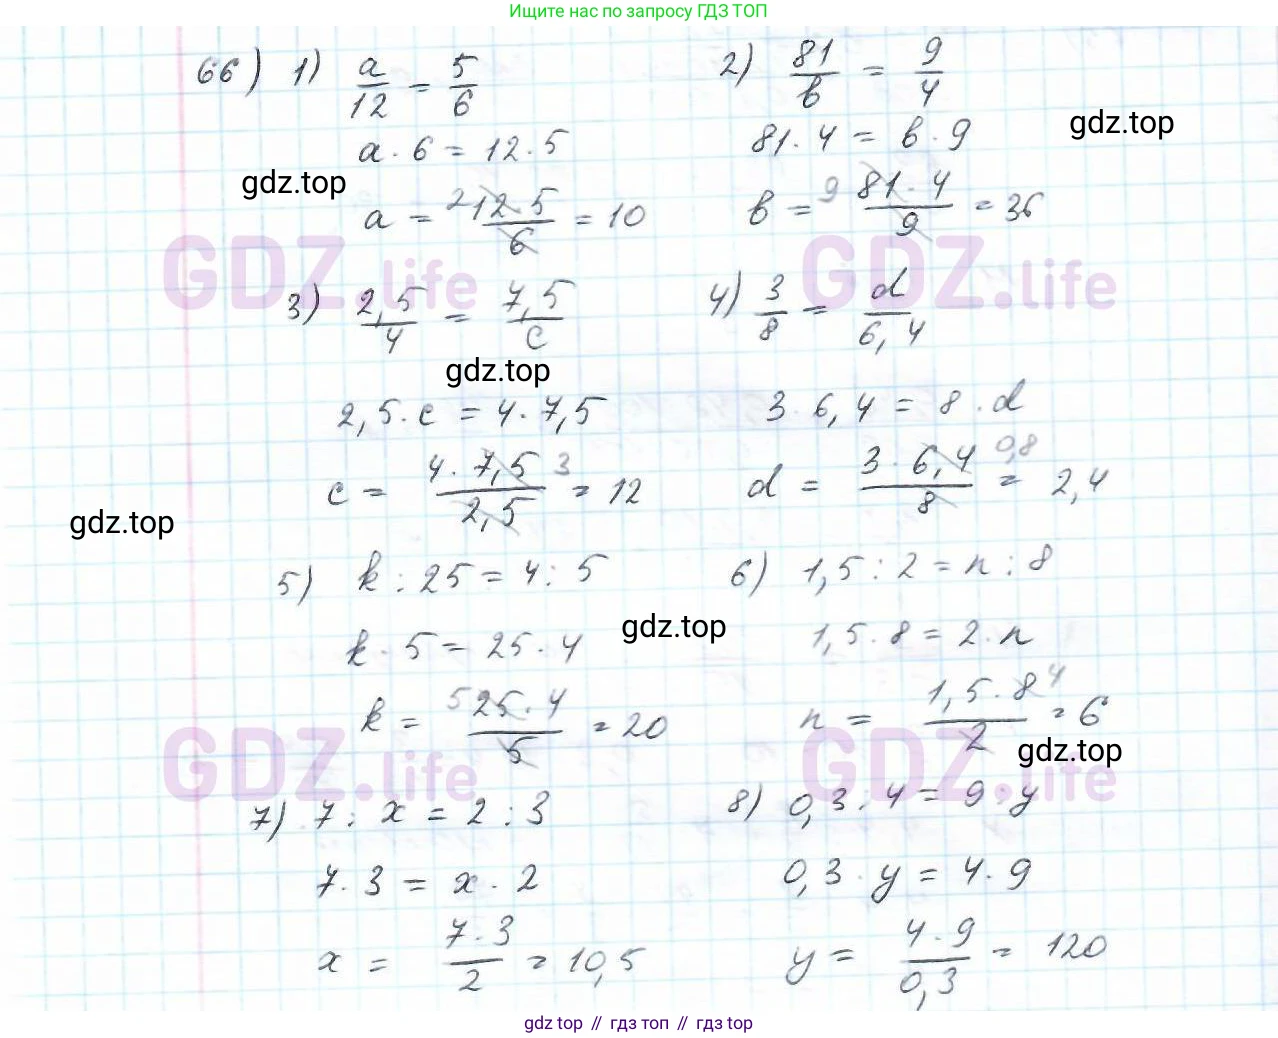 Ищите нас по запросу ГДЗ ТОП
66) 1) a/12 = 5/6
a · 6 = 12 · 5
gdz.top
a = 2 12 · 5/6 = 10
2) 81/b = 9/4
gdz.top
81 · 4 = b · 9
b = 9 81 · 4/9 = 36
GDZ.life
GDZ.life
3) 2,5/4 = 7,5/c
gdz.top
2,5 · c = 4 · 7,5
c = 4 · 7,5 3/2,5 = 12
gdz.top
4) 3/8 = d/6,4
3 · 6,4 = 8 · d
d = 3 · 6,4 0,8/8 = 2,4
5) k : 25 = 4 : 5
k · 5 = 25 · 4
gdz.top
k = 5 25 · 4/5 = 20
6) 1,5 : 2 = n : 8
1,5 · 8 = 2 · n
n = 1,5 · 8 4/2 = 6
gdz.top
GDZ.life
GDZ.life
7) 7 : x = 2 : 3
7 · 3 = x · 2
x = 7 · 3/2 = 10,5
8) 0,3 : 4 = 9 : y
0,3 · y = 4 · 9
y = 4 · 9/0,3 = 120
gdz top // гдз топ // gdz top